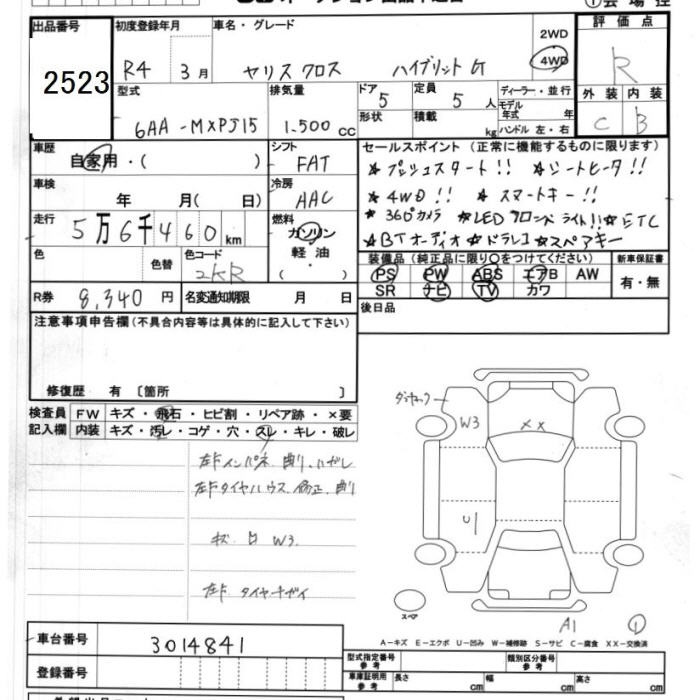 出品番号 初度登録年月 車名・グレード 2WD 4WD 評価点
2523 R4 3月 ヤリスクロス ハイブリット G R
型式 排気量 ドア 5 定員 5人 ディーラー・並行 外装 内装
6AA-MXPJ15 1.500cc 形状 積載 kg モデル年式 年 ハンドル 左・右 C B
車歴 自家用・( ) シフト FAT セールスポイント (正常に機能するものに限ります)
★プッシュスタート!! ★シートヒータ!!
車検 年 月( 日) 冷房 AAC ★4WD!! ★スマートキー!!
走行 5万6千460km 燃料 ガソリン 軽油・( ) ★360°カメラ ★LEDフロントライト!! ★ETC
★BTオーディオ ★ドラレコ ★スペアキー
色 色替 色コード 2KR 装備品 (純正品に限り○をつけてください) 新車保証書
PS PW ABS エアB AW 有・無
R券 8,340円 名変通知期限 月 日 SR ナビ TV カワ
注意事項申告欄(不具合内容等は具体的に記入して下さい) 後日品
修復歴 有 〔箇所 〕
検査員 FW キズ・飛石・ヒビ割・リペア跡・×要
記入欄 内装 キズ・汚レ・コゲ・穴・スレ・キレ・破レ
W3 XX
左F インパネ 削り ハガレ
左F タイヤハウス 修正 削
キズ 凹 W3
U1
左F タイヤチガイ
スペア
A1 ①
A-キズ E-エクボ U-凹み W-補修跡 S-サビ C-腐食 XX-交換済
車台番号 3014841
登録番号
型式指定番号 参考 類別区分番号 参考
車庫証明用 参考 長さ cm 幅 cm 高さ cm